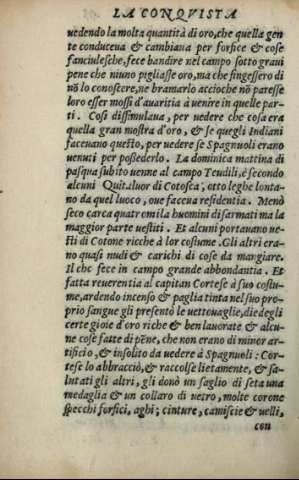 LA CONQVISTA
uedendo la molta quantità di oro, che quella gen
te conduceua & cambiaua per forfice & cose
fanciulesche, fece bandire nel campo sotto graui
pene che niuno pigliasse oro, ma che fingessero di
nō lo conoscere, ne bramarlo accioche nō paresse
loro esser mossi d'auaritia à uenire in quelle par-
ti. Cosi dissimulaua, per uedere che cosa era
quella gran mostra d'oro, & se quegli Indiani
faceuano questo, per uedere se Spagnuoli erano
uenuti per poßederlo. La dominica mattina di
pasqua subito uenne al campo Teudili, è secondo
alcuni Quitaluor di Cotosca, otto leghe lonta-
no da quel luoco, oue faceua residentia. Menò
seco carca quatromila huomini disarmati ma la
maggior parte uestiti. Et alcuni portauano ue-
sti di Cotone ricche à lor costume. Gli altri era-
no quasi nudi & carichi di cose da mangiare.
Il che fece in campo grande abbondantia. Et
fatta reuerentia al capitan Cortese à suo costu-
me, ardendo incenso & paglia tinta nel suo pro-
prio sangue gli presentò le uettouaglie, diedegli
certe gioie d'oro riche & ben lauorate & alcu-
ne cose fatte di pēne, che non erano di minor ar-
tificio, & insolito da uedere à Spagnuoli: Cor-
tese lo abbracciò, & raccolse lietamente, & sa-
lutati gli altri, gli donò un saglio di seta una
medaglia & un collaro di uetro, molte corone
specchi forfici, aghi; cinture, camiscie & ueli,
con